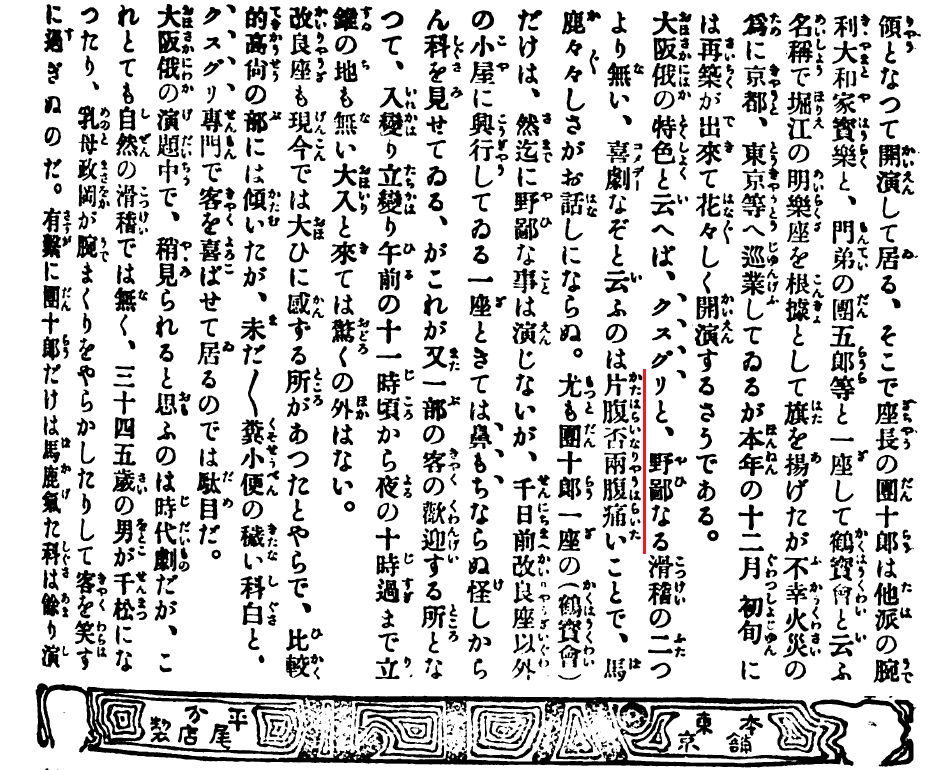 領となつて開演して居る、そこで座長の團十郎は他派の腕
利大和家寳樂と、門弟の團五郎等と一座して鶴寳會と云ふ
名稱で堀江の明樂座を根據として旗を揚げたが不幸火災の
爲に京都、東京等へ巡業してゐるが本年の十二月初旬に
は再築が出來て花々しく開演するさうである。
大阪俄の特色と云へば、クスグリと、野鄙なる滑稽の二つ
より無い、喜劇なぞと云ふのは片腹否兩腹痛いことで、馬
鹿々々しさがお話しにならぬ。尤も團十郎一座の（鶴寳會）
だけは、然迄に野鄙な事は演じないが、千日前改良座以外
の小屋に興行してゐる一座ときては、鼻もちならぬ怪しから
ん科を見せてゐる、がこれが又一部の客の歡迎する所とな
つて、入變り立變り午前の十一時頃から夜の十時過まで立
錐の地も無い大入と來ては驚くの外はない。
改良座も現今では大ひに感する所があつたとやらで、比較
的高尙の部には傾いたが、未だ〱糞小便の穢い科白と、
クスグリ專門で客を喜ばせて居るのでは駄目だ。
大阪俄の演題中で、稍見られると思ふのは時代劇だが、こ
れとても自然の滑稽では無く、三十四五歲の男が千松にな
つたり、乳母政岡が腕まくりをやらかしたりして客を笑す
に過ぎぬのだ。有繫に團十郎だけは馬鹿氣た科は餘り演
本舗
東京
平尾
分店
製